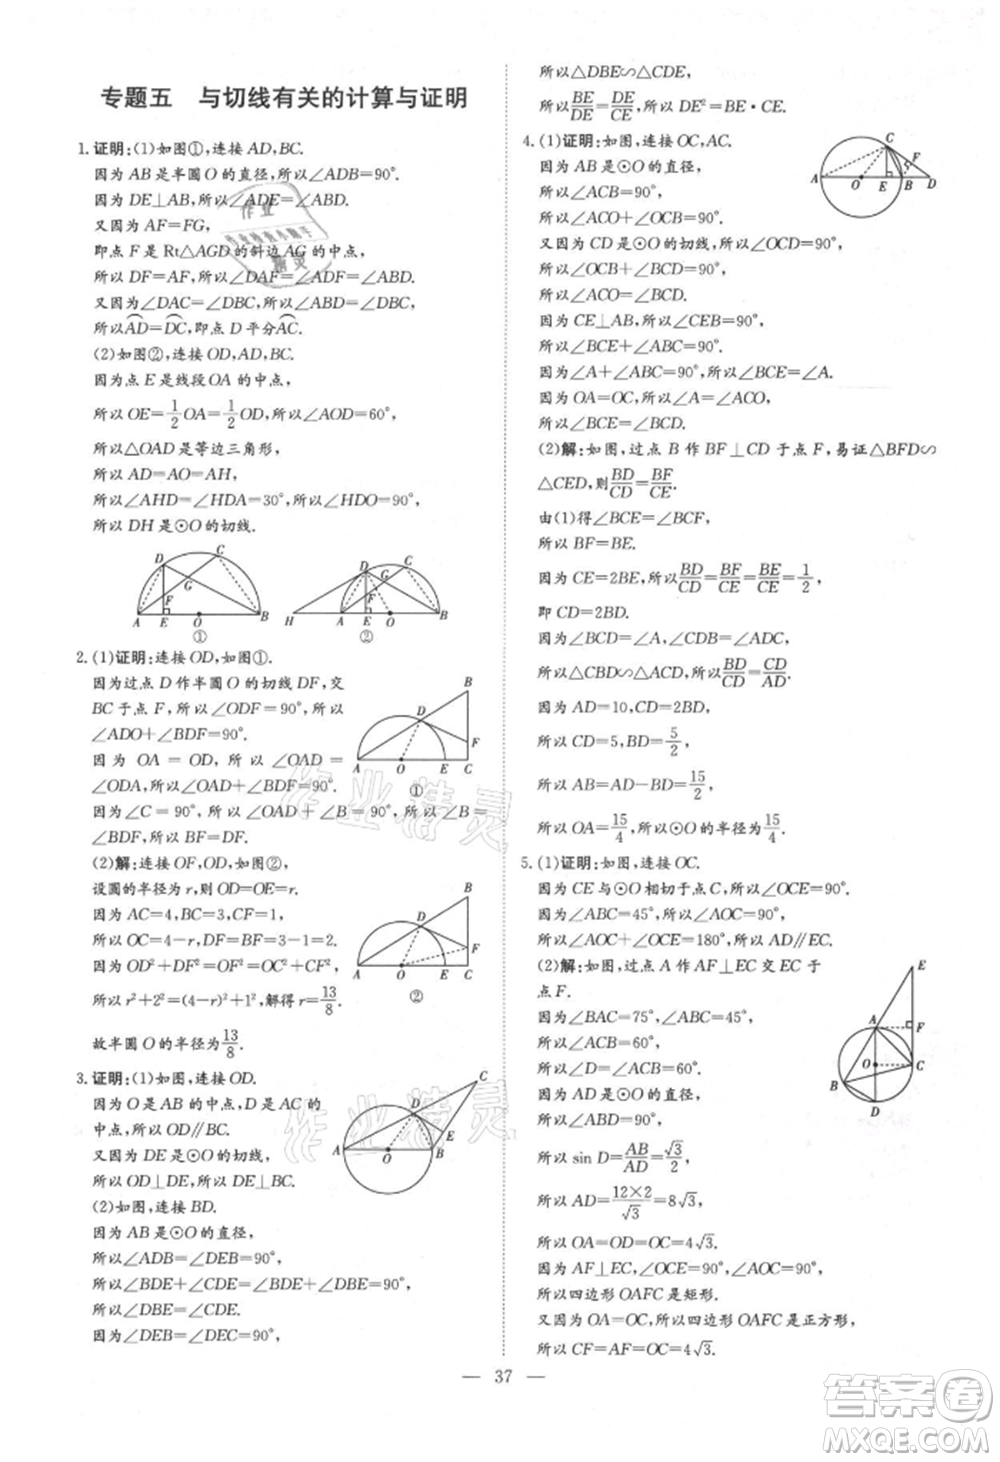 专题五 与切线有关的计算与证明
1.证明:(1)如图①,连接 AD,BC.
因为 AB 是半圆 O 的直径,所以∠ADB=90°.
因为 DE⊥AB,所以∠ADE=∠ABD.
又因为 AF=FG,
即点 F 是 Rt△AGD 的斜边 AG 的中点,
所以 DF=AF,所以∠DAF=∠ADF=∠ABD.
又因为∠DAC=∠DBC,所以∠ABD=∠DBC,
所以AD=DC,即点 D 平分AC.
(2)如图②,连接 OD,AD,BC.
因为点 E 是线段 OA 的中点,
所以 OE=1/2 OA=1/2 OD,所以∠AOD=60°,
所以△OAD 是等边三角形,
所以 AD=AO=AH,
所以∠AHD=∠HDA=30°,所以∠HDO=90°,
所以 DH 是⊙O 的切线.
D C G F A E O B ①
D C G F H A E O B ②
2.(1)证明:连接 OD,如图①.
因为过点 D 作半圆 O 的切线 DF,交
BC 于点 F,所以∠ODF=90°,所以
∠ADO+∠BDF=90°.
因为 OA=OD,所以∠OAD=
∠ODA,所以∠OAD+∠BDF=90°.
因为∠C=90°,所以∠OAD+∠B=90°,所以∠B=
∠BDF,所以 BF=DF.
B D F A O E C ①
(2)解:连接 OF,OD,如图②.
设圆的半径为 r,则 OD=OE=r.
因为 AC=4,BC=3,CF=1,
所以 OC=4-r,DF=BF=3-1=2.
因为 OD²+DF²=OF²=OC²+CF²,
所以 r²+2²=(4-r)²+1²,解得 r=13/8.
故半圆 O 的半径为13/8.
B D F A O E C ②
3.证明:(1)如图,连接 OD.
因为 O 是 AB 的中点,D 是 AC 的
中点,所以 OD∥BC.
又因为 DE 是⊙O 的切线,
所以 OD⊥DE,所以 DE⊥BC.
(2)如图,连接 BD.
因为 AB 是⊙O 的直径,
所以∠ADB=∠DEB=90°,
所以∠BDE+∠CDE=∠BDE+∠DBE=90°,
所以∠DBE=∠CDE.
因为∠DEB=∠DEC=90°,
C D E A O B
所以△DBE∽△CDE,
所以BE/DE=DE/CE,所以 DE²=BE·CE.
4.(1)证明:如图,连接 OC,AC.
因为 AB 是⊙O 的直径,
所以∠ACB=90°,
所以∠ACO+∠OCB=90°.
又因为 CD 是⊙O 的切线,所以∠OCD=90°,
所以∠OCB+∠BCF=90°,
所以∠ACO=∠BCF.
因为 CE⊥AB,所以∠CEB=90°,
所以∠BCE+∠ABC=90°.
因为∠A+∠ABC=90°,所以∠BCE=∠A.
因为 OA=OC,所以∠A=∠ACO,
所以∠BCE=∠BCD.
C F A O E B D
(2)解:如图,过点 B 作 BF⊥CD 于点 F,易证△BFD∽
△CED,则BD/CD=BF/CE.
由(1)得∠BCE=∠BCF,
所以 BF=BE.
因为 CE=2BE,所以BD/CD=BF/CE=BE/CE=1/2,
即 CD=2BD.
因为∠BCD=∠A,∠CDB=∠ADC,
所以△CBD∽△ACD,所以BD/CD=CD/AD.
因为 AD=10,CD=2BD,
所以 CD=5,BD=5/2,
所以 AB=AD-BD=15/2,
所以 OA=15/4,所以⊙O 的半径为15/4.
5.(1)证明:如图,连接 OC.
因为 CE 与⊙O 相切于点 C,所以∠OCE=90°.
因为∠ABC=45°,所以∠AOC=90°,
所以∠AOC+∠OCE=180°,所以 AD∥EC.
(2)解:如图,过点 A 作 AF⊥EC 交 EC 于
点 F.
因为∠BAC=75°,∠ABC=45°,
所以∠ACB=60°,
所以∠D=∠ACB=60°.
因为 AD 是⊙O 的直径,
所以∠ABD=90°,
所以 sin D=AB/AD=√3/2,
所以 AD=12×2/√3=8√3,
所以 OA=OD=OC=4√3.
因为 AF⊥EC,∠OCE=90°,∠AOC=90°,
所以四边形 OAFC 是矩形.
又因为 OA=OC,所以四边形 OAFC 是正方形,
所以 CF=AF=OC=4√3.
E A F O C B D
— 37 —
作业精灵
作业精灵
答案卷
MXQE.COM